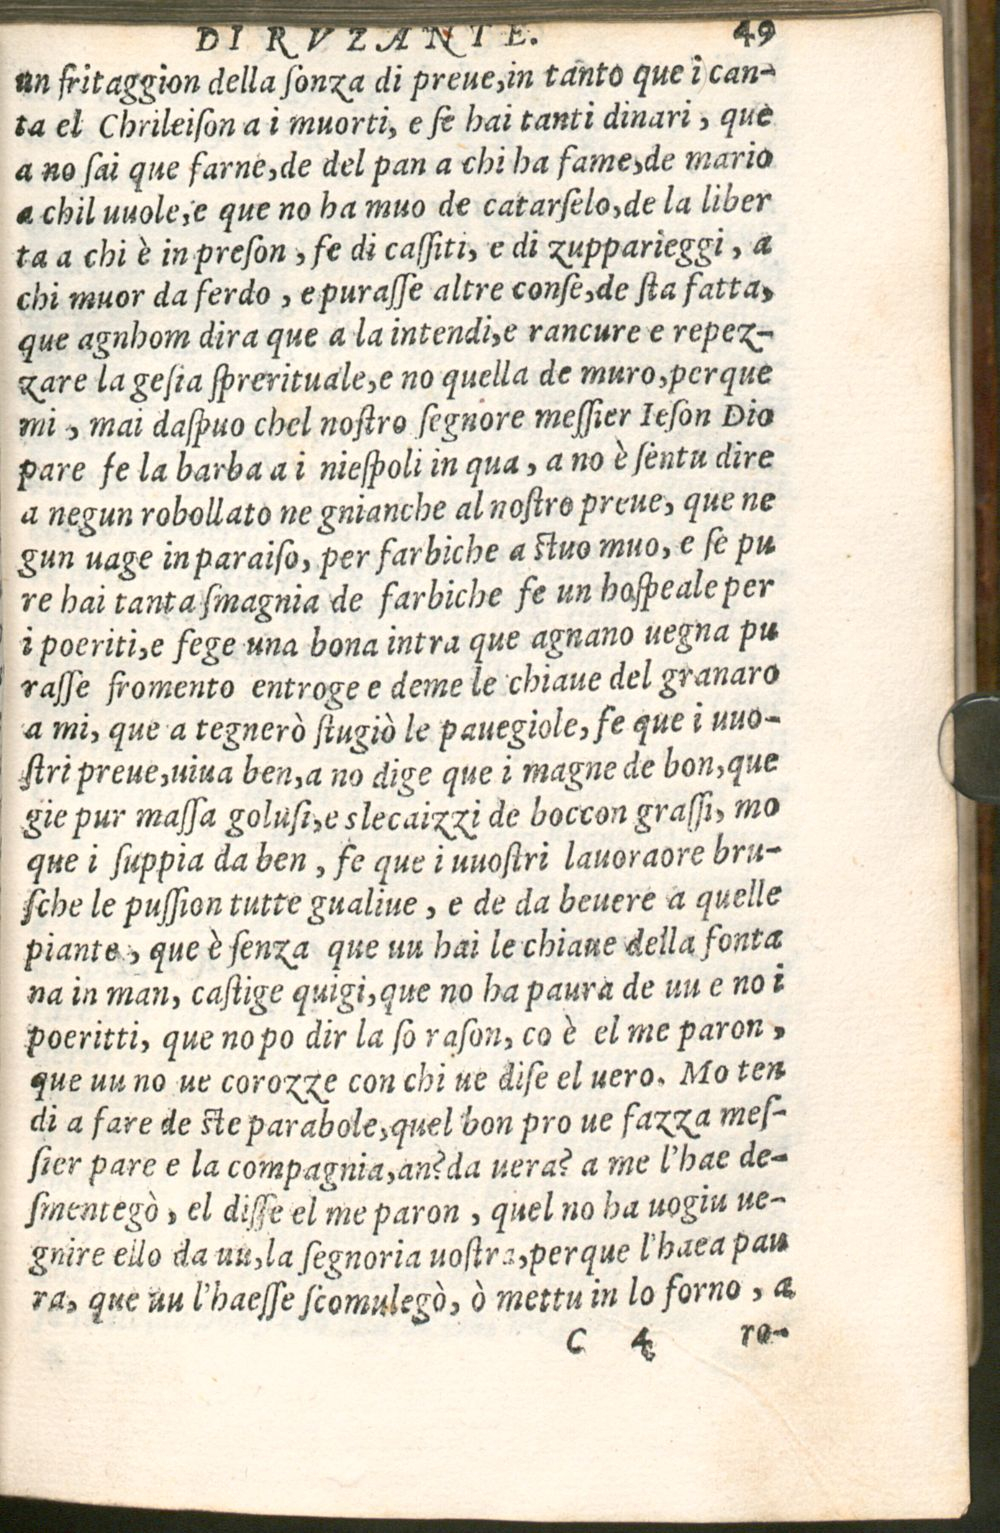 DI RVZANTE. 49
un fritaggion della ſonza di preue,in tanto que i can-
ta el Chrileiſon a i muorti, e ſe hai tanti dinari, que
a no ſai que farne,de del pan a chi ha fame,de mario
a chil uuole,e que no ha muo de catarſelo,de la liber
ta a chi è in preſon, fe di caſſiti, e di zupparieggi, a
chi muor da ferdo, e puraſſe altre conſe,de ſta fatta,
que agnhom dira que a la intendi,e rancure e repez-
zare la geſia ſprerituale,e no quella de muro,perque
mi, mai daſpuo chel noſtro ſegnore meſſier Ieſon Dio
pare fe la barba a i nieſpoli in qua, a no è ſentu dire
a negun robollato ne gnianche al noſtro preue, que ne
gun uage in paraiſo, per farbiche a ſtuo muo, e ſe pu
re hai tanta ſmagnia de farbiche fe un hoſpeale per
i poeriti,e fege una bona intra que agnano uegna pu
raſſe fromento entroge e deme le chiaue del granaro
a mi, que a tegnerò ſtugiò le pauegiole, fe que i uuo-
ſtri preue,uiua ben,a no dige que i magne de bon,que
gie pur maſſa goluſi,e slecaizzi de boccon graſſi, mo
que i ſuppia da ben, fe que i uuoſtri lauoraore bru-
ſche le puſſion tutte gualiue, e de da beuere a quelle
piante, que è ſenza que uu hai le chiaue della fonta
na in man, caſtige quigi,que no ha paura de uu e no i
poeritti, que no po dir la ſo raſon, co è el me paron,
que uu no ue corozze con chi ue diſe el uero. Mo ten
di a fare de ſte parabole,quel bon pro ue fazza meſ-
ſier pare e la compagnia,an?da uera? a me l'hae de-
ſmentegò, el diſſe el me paron, quel no ha uogiu ue-
gnire ello da uu,la ſegnoria uoſtra,perque l'haea pau
ra, que uu l'haeſſe ſcomulegò, ò mettu in lo forno, a
C 4 ro-